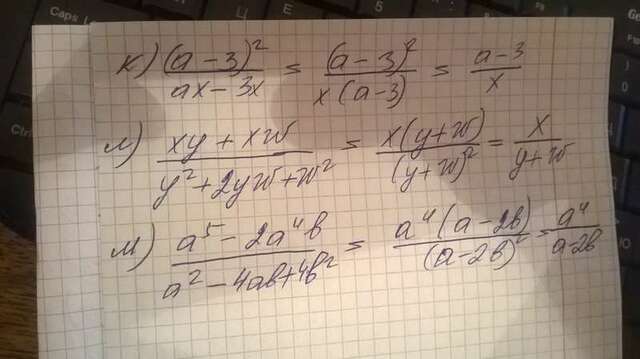 к) (a-3)²/(ax-3x) = (a-3)²/(x(a-3)) = (a-3)/x
л) (xy+xw)/(y²+2yw+w²) = x(y+w)/(y+w)² = x/(y+w)
м) (a⁵-2a⁴b)/(a²-4ab+4b²) = a⁴(a-2b)/(a-2b)² = a⁴/(a-2b)
Caps Lo